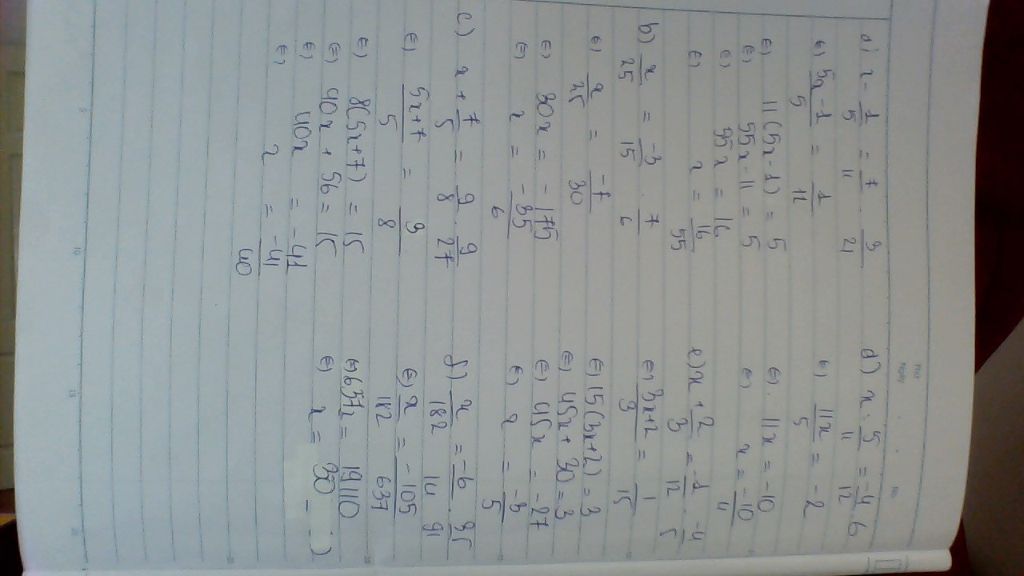 a) x - 1/5 = 7/11 . 3/21
⇔ 5x-1/5 = 1/11
⇔ 11(5x-1) = 5
⇔ 55x-11 = 5
⇔ 55x = 16
⇔ x = 16/55
b) x/25 = -3/15 . 7/6
⇔ x/25 = -7/30
⇔ 30x = -175
⇔ x = -35/6
c) x + 7/5 = 9/8 . 9/27
⇔ 5x+7/5 = 3/8
⇔ 8(5x+7) = 15
⇔ 40x + 56 = 15
⇔ 40x = -41
⇔ x = -41/40
d) x : 5/11 = -4/12 . 6
⇔ 11x/5 = -2
⇔ 11x = -10
⇔ x = -10/11
e) x + 2/3 = -1/12 . -4/5
⇔ 3x+2/3 = 1/15
⇔ 15(3x+2) = 3
⇔ 45x + 30 = 3
⇔ 45x = -27
⇔ x = -3/5
f) x/182 = -6/14 . 35/91
⇔ x/182 = -105/637
⇔ 637x = 19110
⇔ x = 30